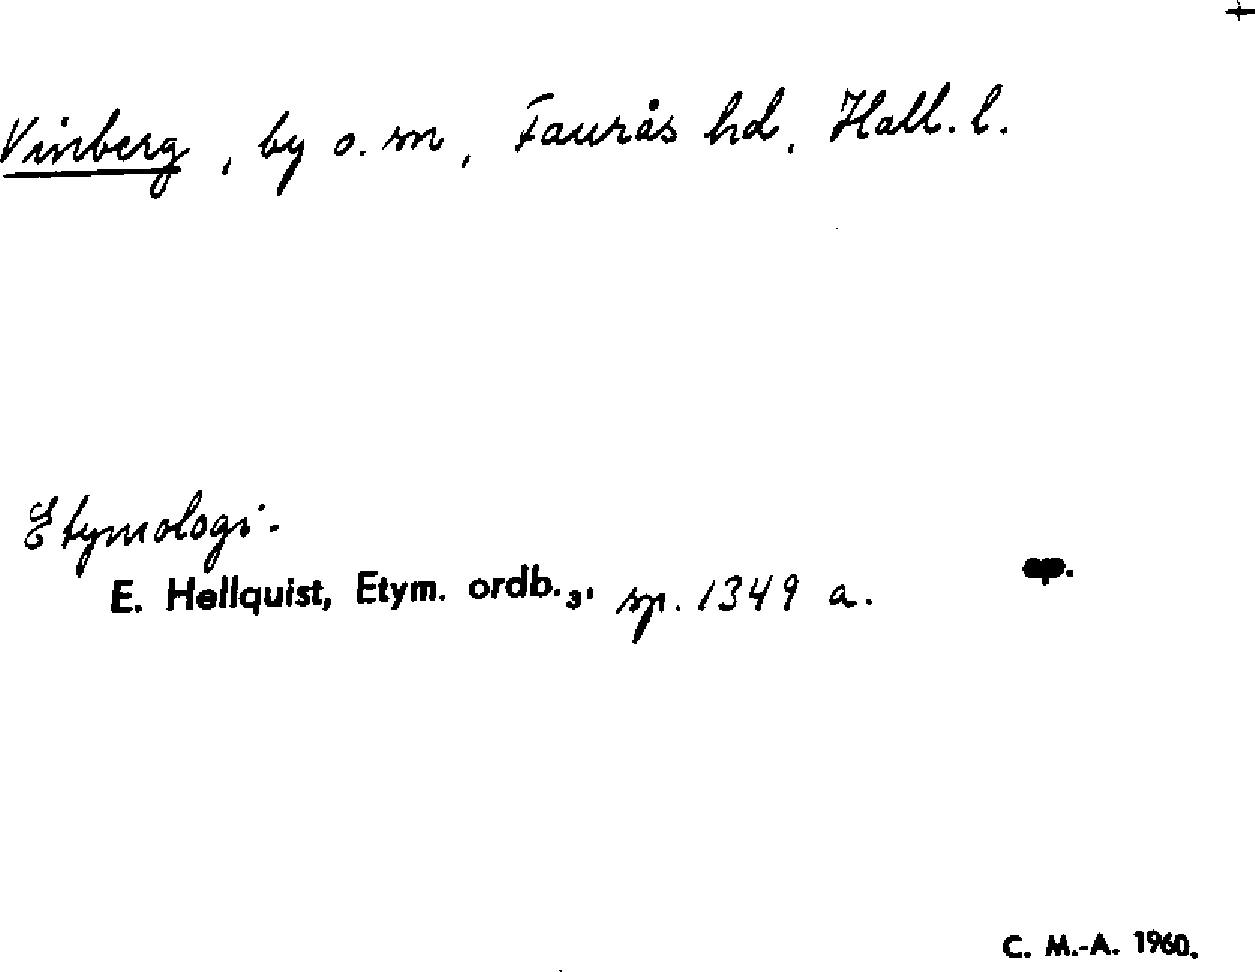 +
Vinberg, by o. sn, Faurås hd, Hall. l.
Etymologi.
E. Hellquist, Etym. ordb.₃, sp. 1349 a. sp.
C. M.-A. 1960.